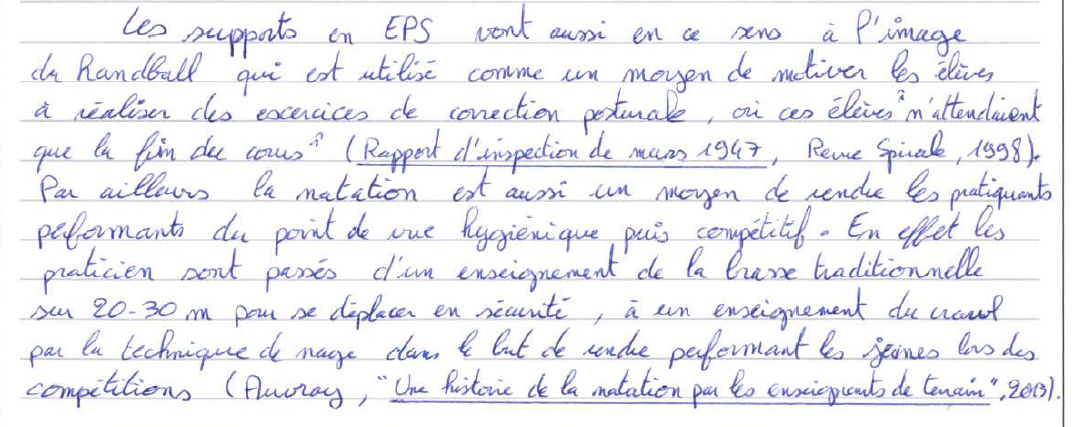 Les supports en EPS vont aussi en ce sens à l'image
du handball qui est utilisé comme un moyen de motiver les élèves
à réaliser des excercices de correction posturale, où ces élèves "n'attendaient
que la fin du cours" (Rapport d'inspection de mars 1947, Revue Spirale, 1998).
Par ailleurs la natation est aussi un moyen de rendre les pratiquants
performants du point de vue hygiénique, puis compétitif. En effet les
praticien sont passés d'un enseignement de la brasse traditionnelle
sur 20-30 m pour se déplacer en sécurité, à un enseignement du crawl
par la technique de nage dans le but de rendre performant les jeunes lors des
compétitions (Auvray, "Une histoire de la natation par les enseignants de terrain", 2013).